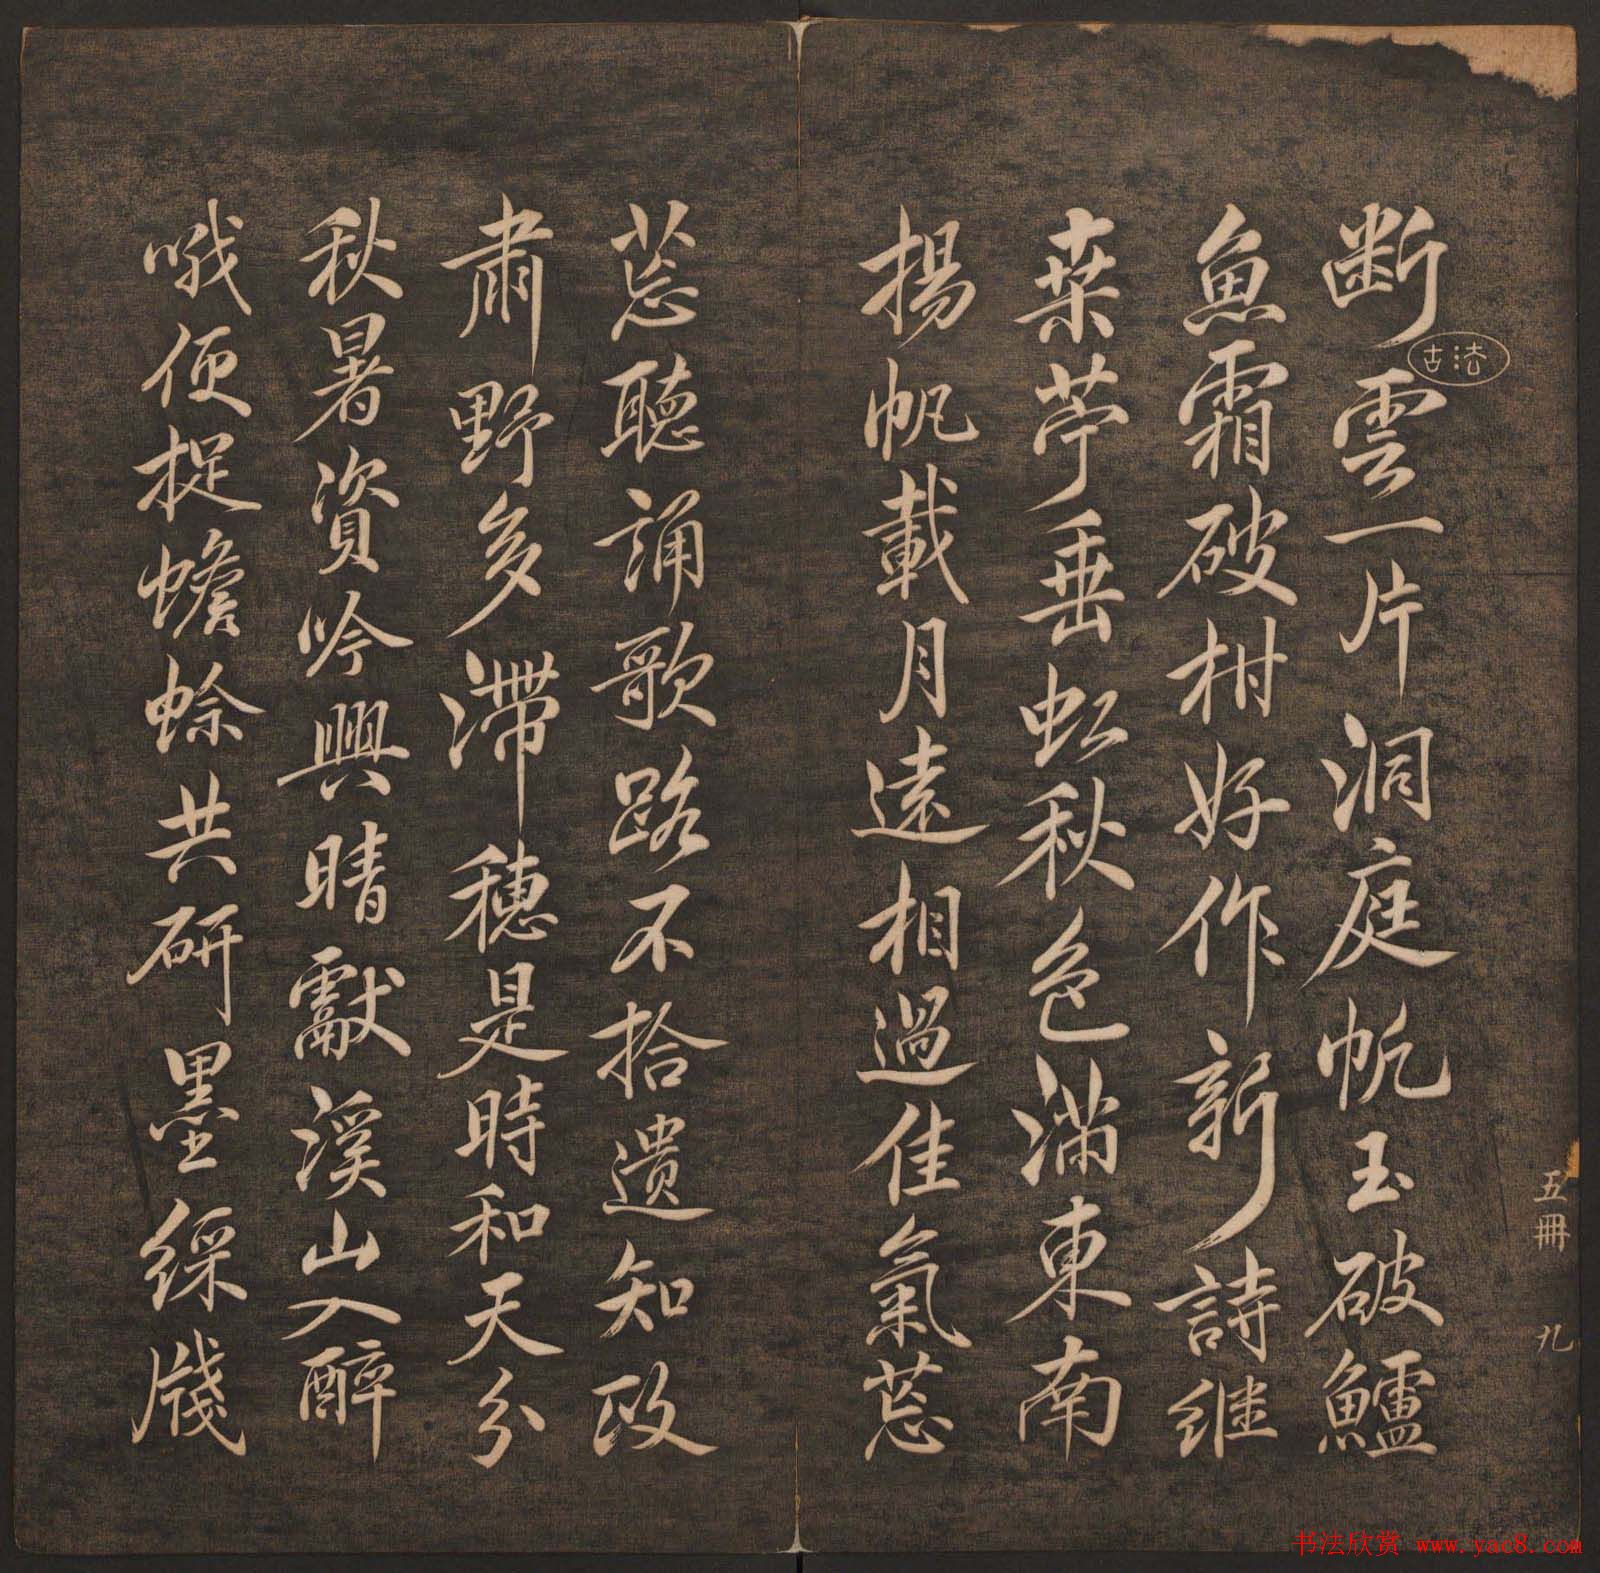 断雲一片洞庭帆玉破鱸
魚霜破柑好作新詩継
桒苧垂虹秋色満東南
揚帆載月遠相過佳氣葱
葱聽誦歌路不拾遺知政
肅野多滯穗是時和天分
秋暑資吟興晴獻溪山入醉
哦便捉蟾蜍共研墨綵牋
法古
五冊 九
书法欣赏 www.yac8.com